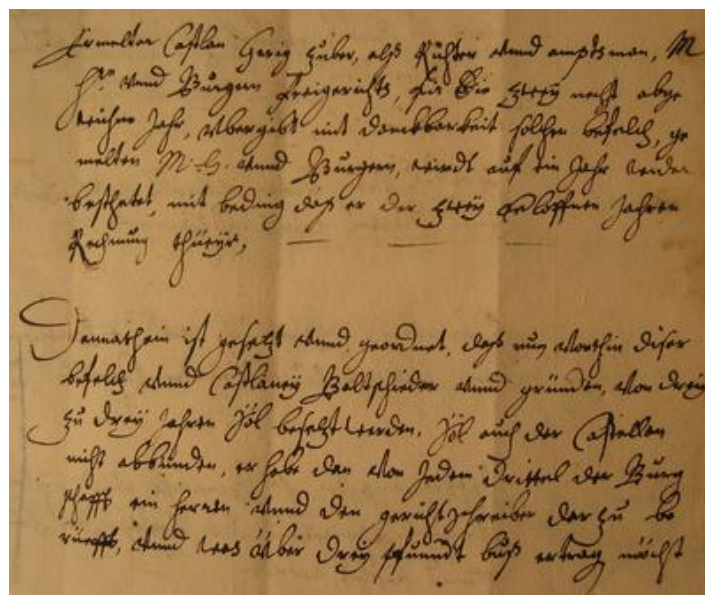 Ermelter Castlan Gerig Zuber, alß Richter vnnd amptsman, M
H. vnnd Burgern Freigerichts, für die zweÿ nechst abge
wichne Jahr, vbergibt mit danckbarkeit solchen befelch, ge
melten M. H. vnnd Burgern, wirdt auf ein Jahr wider
besthetet, mit beding daß er der zweÿ verloffnen Jahren
Rechnung
ist gesetzt vnnd geordnet, daß nun vorthin diser
befelch vnnd Castlaneÿ Baltschieder vnnd gründen, von dreÿ
zu dreÿ Jahren söl besetzt werden. Söl auch der Castellan
nicht abkünden, er habe dan von Jedem Drittel der Burg
schafft ein herren vnnd den gerichtschreiber dar zu be
rüefft, vnnd was über dreÿ pfundt buß ertragen möcht